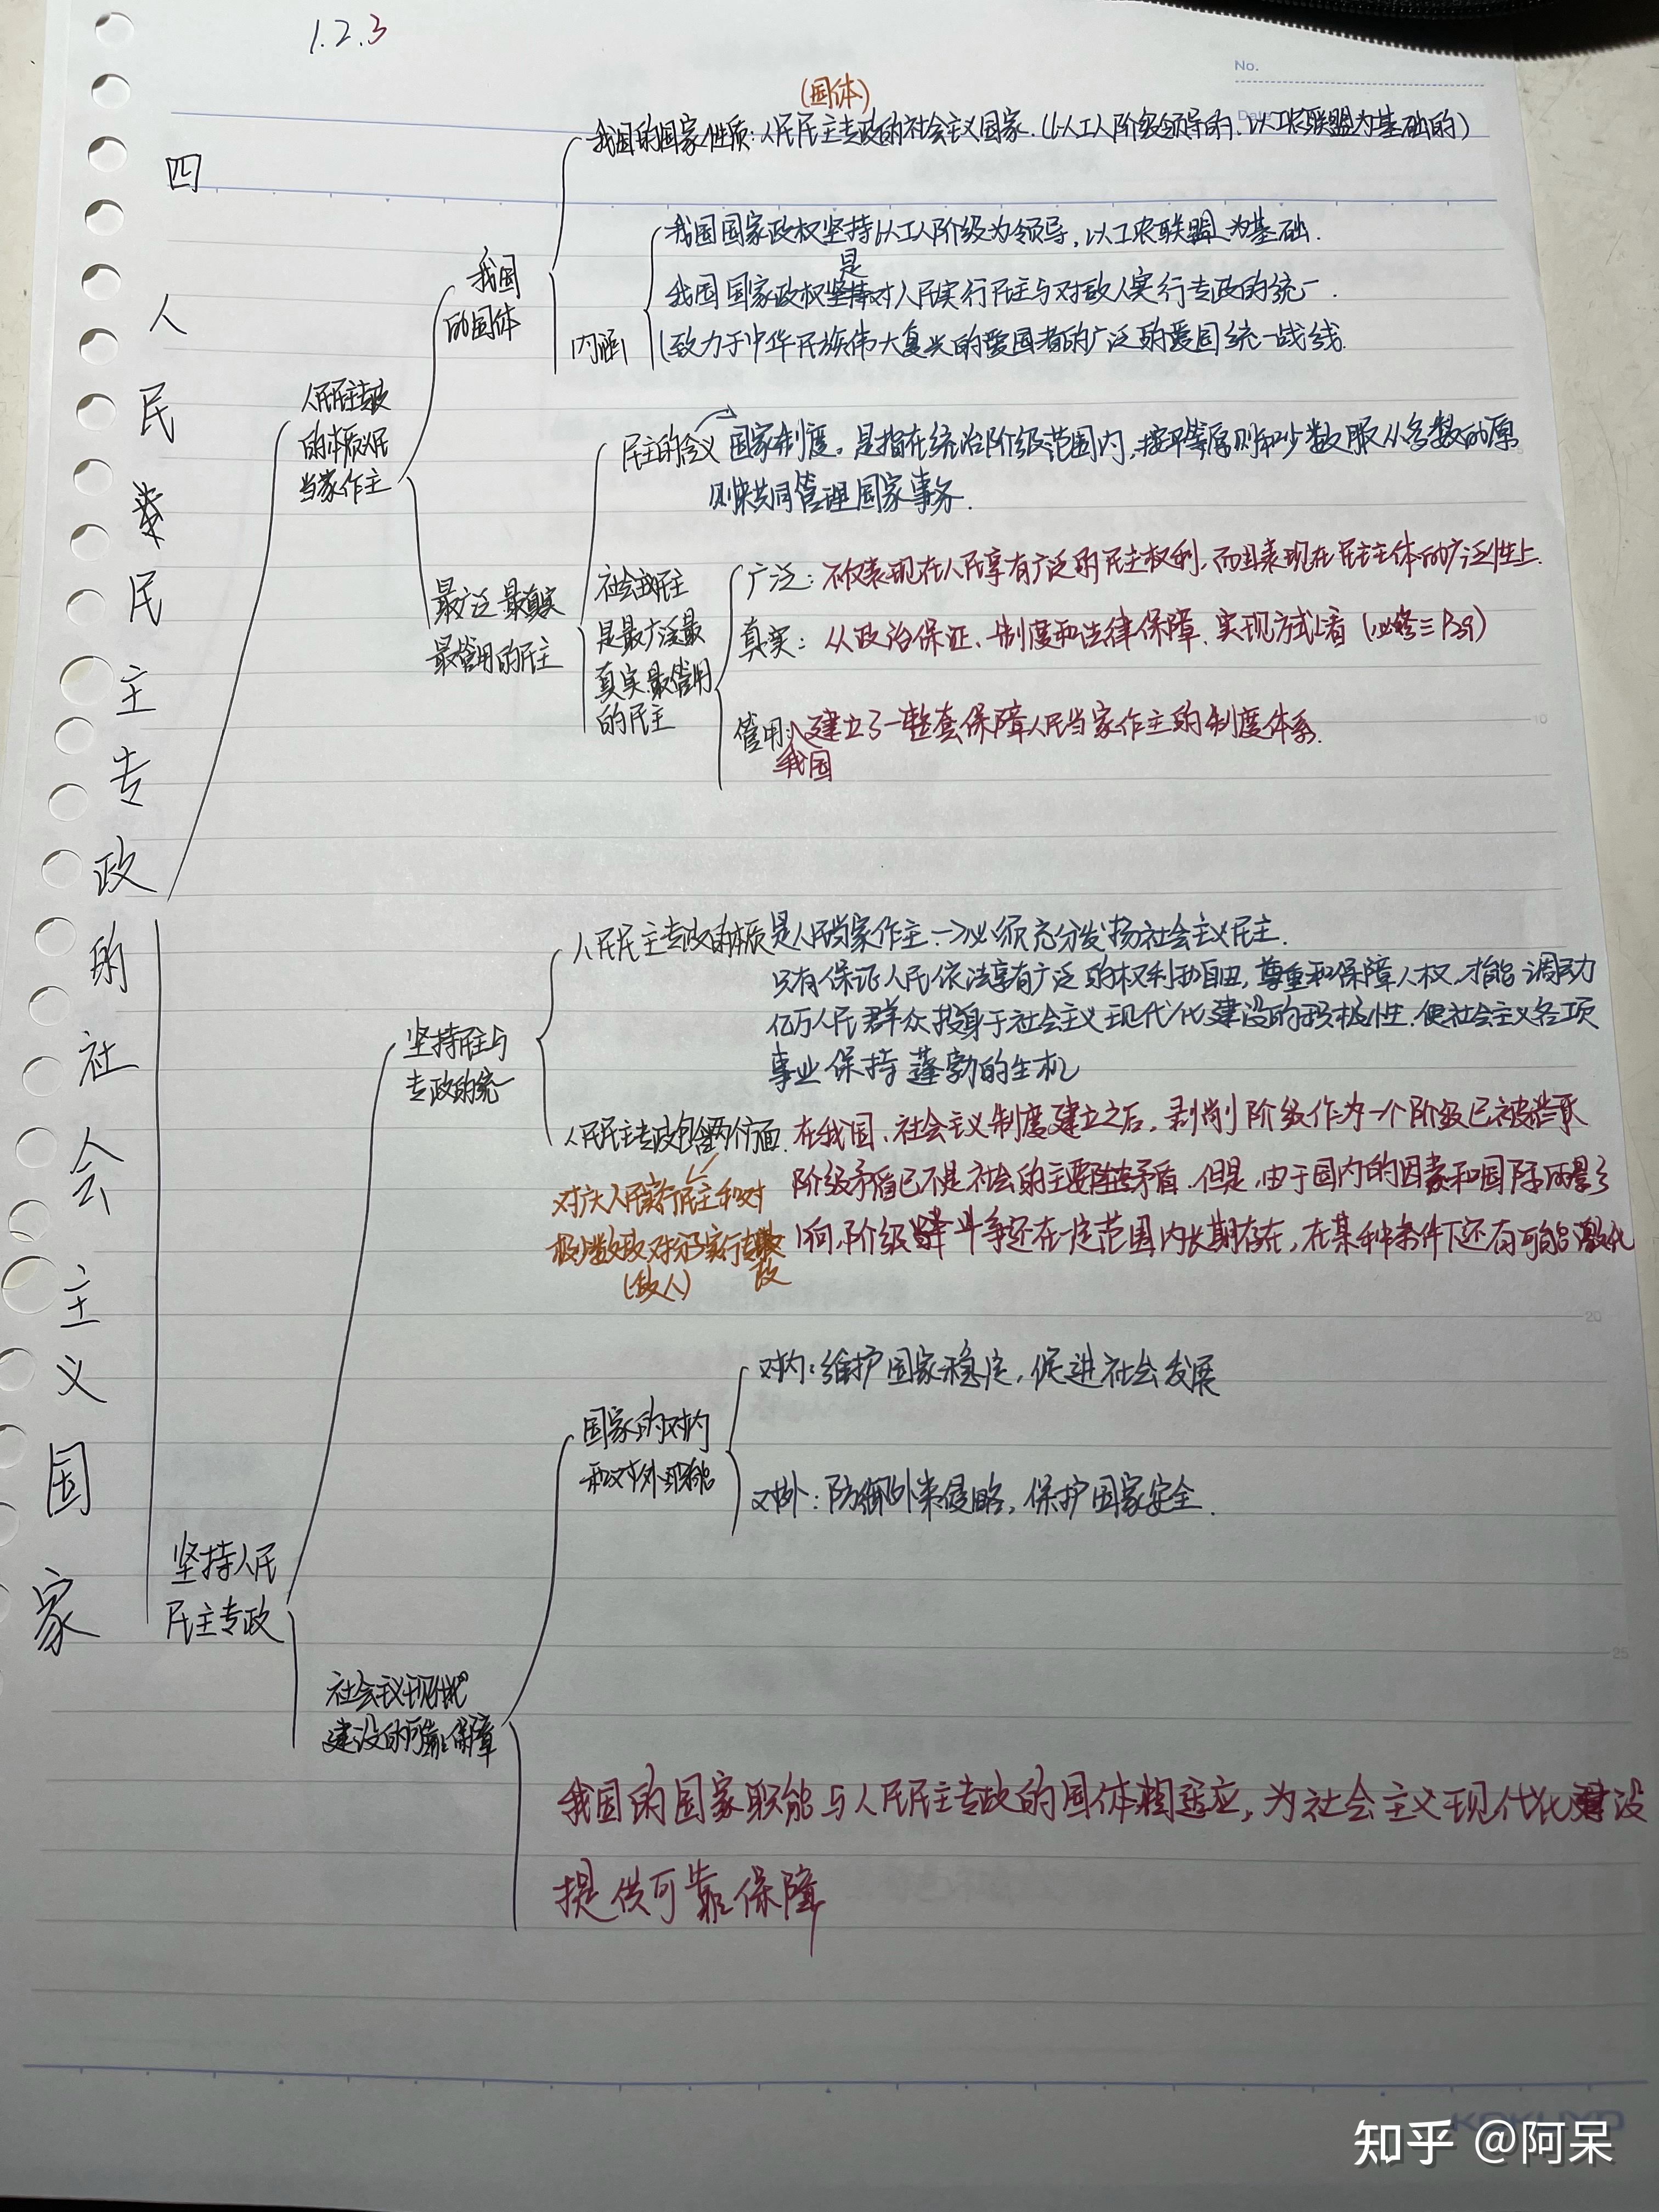 1.2.3
No.
(国体)
四
人民民主专政的社会主义国家
人民民主专政
的本质:人民
当家作主
我国
的国体
我国的国家性质:人民民主专政的社会主义国家.(以工人阶级领导的.以工农联盟为基础的)
内涵
我国国家政权坚持以工人阶级为领导,以工农联盟为基础.
是
我国国家政权对人民实行民主与对敌人实行专政的统一.
致力于中华民族伟大复兴的爱国者的广泛的爱国统一战线.
最广泛 最真实
最管用的民主
民主的含义 国家制度。是指在统治阶级范围内,按平等原则和少数服从多数的原
则来共同管理国家事务.
社会主义民主
是最广泛最
真实最管用
的民主
广泛:不仅表现在人民享有广泛的民主权利,而且表现在民主主体的广泛性上.
真实:从政治保证、制度和法律保障、实现方式上看(必修三P39)
管用:建立了一整套保障人民当家作主的制度体系.
我国
坚持人民
民主专政
坚持民主与
专政的统一
人民民主专政的本质是人民当家作主.→必须充分发扬社会主义民主.
只有保证人民依法享有广泛的权利和自由,尊重和保障人权,才能调动
亿万人民群众投身于社会主义现代化建设的积极性.使社会主义各项
事业保持蓬勃的生机
人民民主专政包含两个方面.在我国、社会主义制度建立之后,剥削阶级作为一个阶级已被消灭
阶级矛盾已不是社会的主要矛盾.但是,由于国内的因素和国际的影
响,阶级斗争还在一定范围内长期存在,在某种条件下还有可能激化
对广大人民实行民主和对
极少数敌对分子实行专政
(敌人)
社会主义现代化
建设的可靠保障
国家的对内
和对外职能
对内:维护国家稳定,促进社会发展
对外:防御外来侵略,保护国家安全.
我国的国家职能与人民民主专政的国体相适应,为社会主义现代化建设
提供可靠保障
10
20
25
KOKUYO
知乎 @阿呆